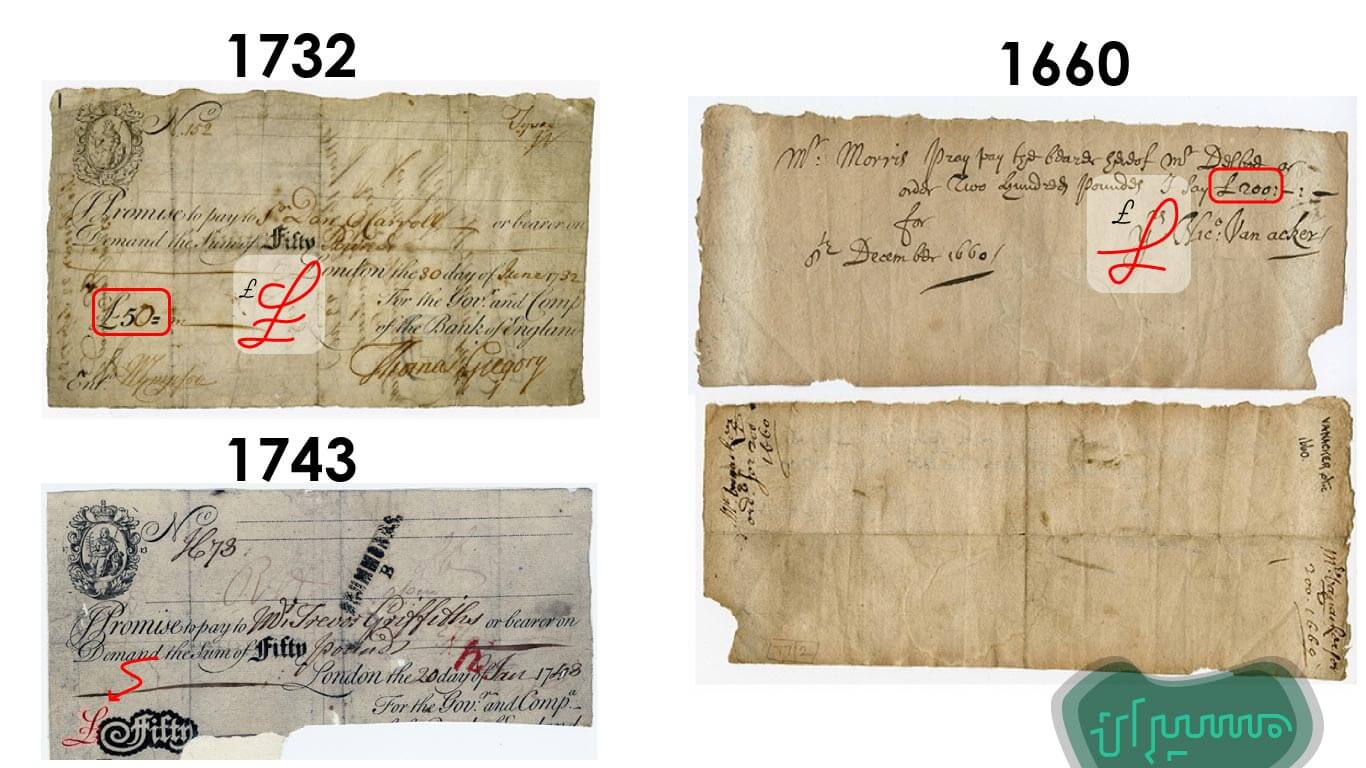 1732
No. 152
I Promise to pay to or bearer on
Demand the Sum of Fifty Pounds
London the 30 day of June 1732
£
£
For the Govr. and Comp
£50=
of the Bank of England
Thomas Gregory
Entd
1743
No H73
I Promise to pay to Mr. Trevor Griffiths or bearer on
Demand the Sum of Fifty pounds
London the 20 day of Jan 1743
For the Govr. and Compa.
£ Fifty
1660
Mr. Morris Pray pay the bearer hereof Mr Delboe or
order Two hundred Poundes I say £200:-:-
for
£
£
Nico: Van acker
December 1660
1660
VANACKER
1660.
200. 1660
مسیران